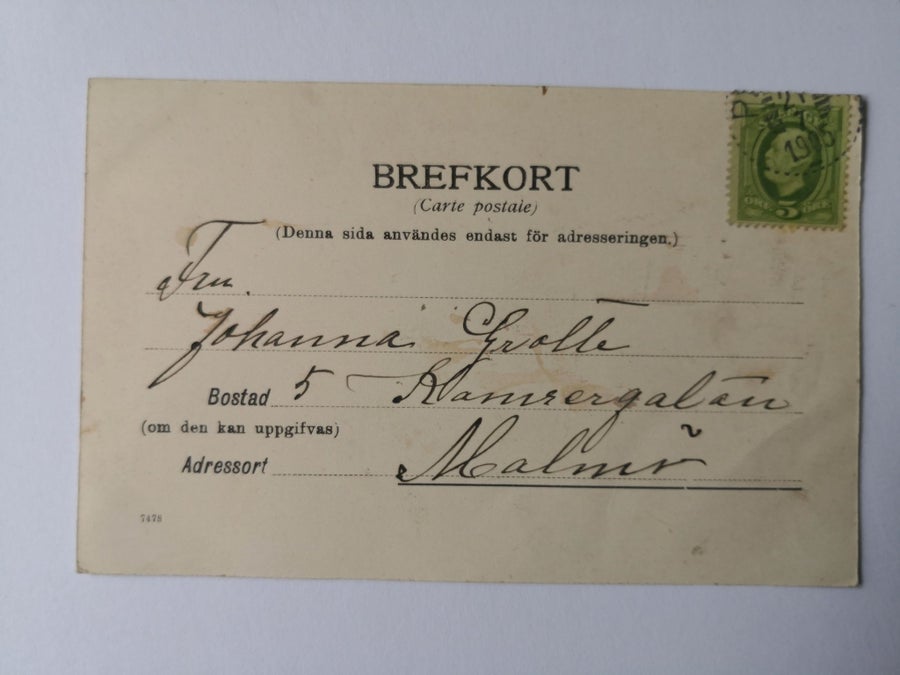 BREFKORT
(Carte postale)
(Denna sida användes endast för adresseringen.)
Fru
Johanna Grotte
Bostad 5
(om den kan uppgifvas)
Adressort Malmö
7478
ÖRE 5 ÖRE